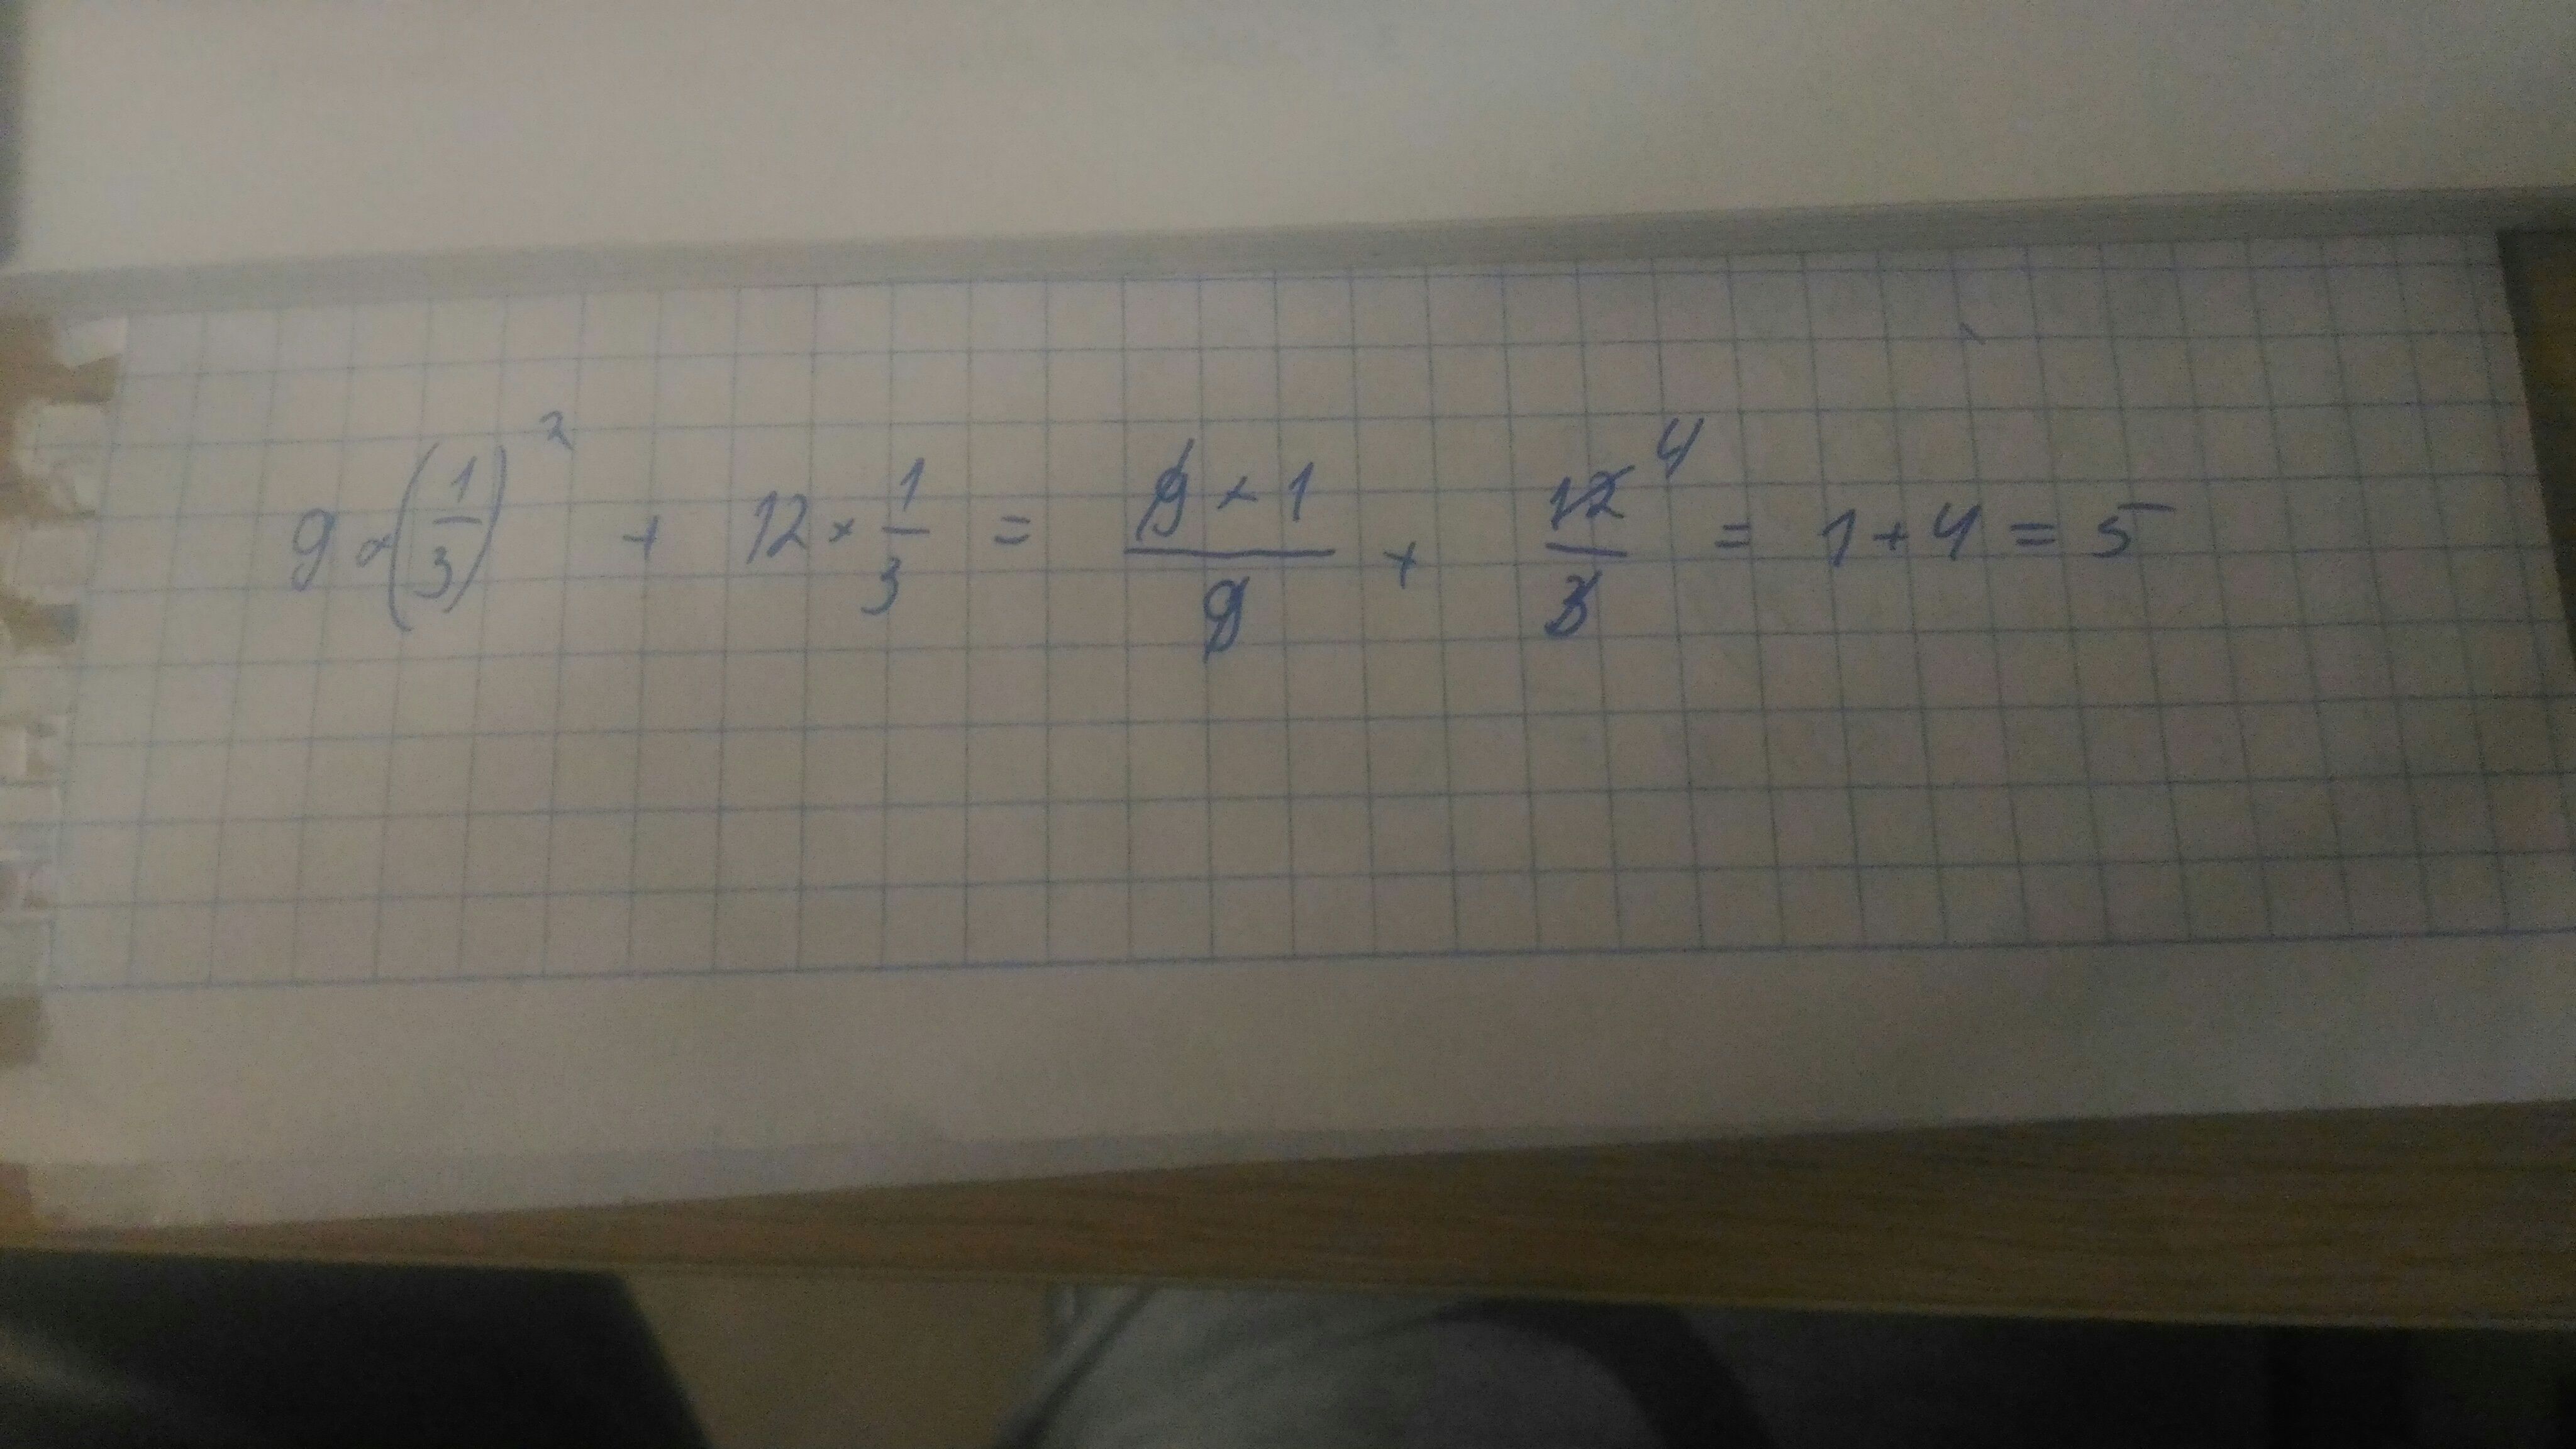 9 × (1/3)² + 12 × 1/3 = 9 × 1/9 + 12/3 4 = 1 + 4 = 5